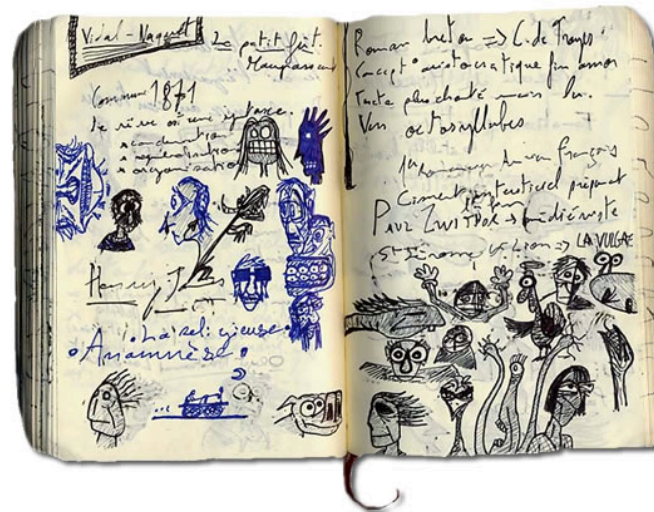 Vidal-Naquet Le petit fût.
Maupassant
Commune 1871
Le rêve syntaxe.
* condensation
*
* organisation
Henry James
La religieuse
Anamnèse
Roman breton => C. de Troyes
Concept aristocratique fin amor
Texte plus chanté mais lu.
Vers octosyllabes
1er roman français
Ciment interstitiel
Paul Zumthor → médiéviste
St Jérome Lion => LA VULGATE